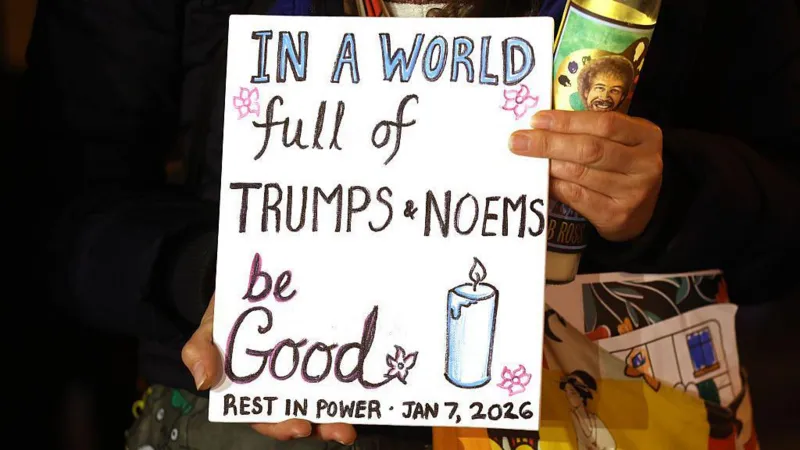 IN A WORLD
full of
TRUMPS & NOEMS
be
Good
REST IN POWER · JAN 7, 2026
B ROSS